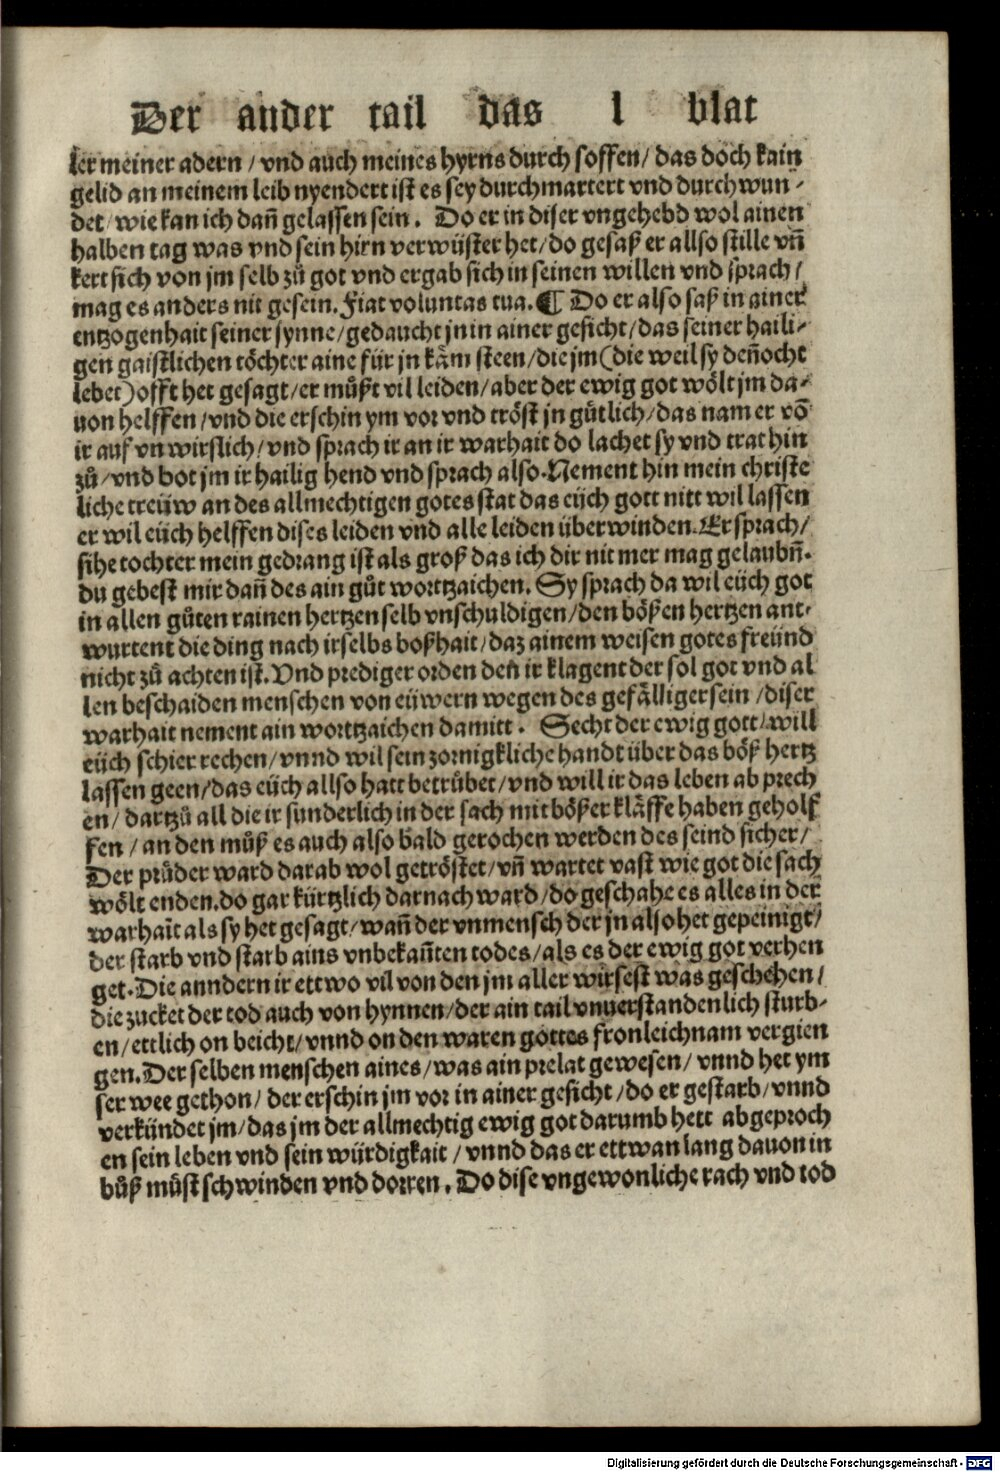 Der ander tail das l blat
ler meiner adern / vnd auch meines hyrns durch soffen / das doch kain
gelid an meinem leib nyendert ist es sey durchmartert vnd durch wun -
det / wie kan ich dañ gelassen sein . Do er in diser vngehebd wol ainen
halben tag was vnd sein hirn verwüster het / do gesaß er allso stille vñ
kert sich von jm selb zů got vnd ergab sich in seinen willen vnd sprach /
mag es anders nit gesein . Fiat voluntas tua . ¶ Do er also saß in ainer
entzogenhait seiner synne / gedaucht jn in ainer gesicht / das seiner haili-
gen gaistlichen töchter aine für jn käm steen / die jm ( die weil sy deñocht
lebet ) offt het gesagt / er můßt vil leiden / aber der ewig got wölt jm da-
uon helffen / vnd die erschin ym vor vnd tröst jn gůtlich / das nam er võ
ir auf vn wirslich / vnd sprach ir an ir warhait do lachet sy vnd trat hin
zů / vnd bot jm ir hailig hend vnd sprach also . Nement hin mein christe
liche treüw an des allmechtigen gotes stat das eüch gott nitt wil lassen
er wil eüch helffen dises leiden vnd alle leiden überwinden . Er sprach /
sihe tochter mein gedrang ist als groß das ich dir nit mer mag gelaubñ .
du gebest mir dañ des ain gůt wortzaichen . Sy sprach da wil eüch got
in allen gůten rainen hertzen selb vnschuldigen / den bößen hertzen ant-
wurtent die ding nach ir selbs boßhait / daz ainem weisen gotes freünd
nicht zů achten ist . Vnd prediger orden deñ ir klagent der sol got vnd al
len beschaiden menschen von eüwern wegen des gefälliger sein / diser
warhait nement ain wortzaichen damitt . Secht der ewig gott / will
eüch schier rechen / vnnd wil sein zornigkliche handt über das böß hertz
lassen geen / das eüch allso hatt betrůbet / vnd will ir das leben ab prech
en / dartzů all die ir sunderlich in der sach mit bößer kläffe haben geholf
fen / an den můß es auch also bald gerochen werden des seind sicher /
Der průder ward darab wol getröstet / vñ wartet vast wie got die sach
wölt enden . do gar kürtzlich darnach ward / do geschahe es alles in der
warhait als sy het gesagt / wañ der vnmensch der jn also het gepeinigt /
der starb vnd starb ains vnbekañten todes / als es der ewig got verhen
get . Die anndern ir ettwo vil von den jm aller wirsest was geschehen /
die zucket der tod auch von hynnen / der ain tail vnuerstandenlich sturb-
en / ettlich on beicht / vnnd on den waren gottes fronleichnam vergien
gen . Der selben menschen aines / was ain prelat gewesen / vnnd het ym
ser wee gethon / der erschin jm vor in ainer gesicht / do er gestarb / vnnd
verkündet jm / das jm der allmechtig ewig got darumb hett abgeproch
en sein leben vnd sein würdigkait / vnnd das er ettwan lang dauon in
bůß můst schwinden vnd dorren . Do dise vngewonliche rach vnd tod
Digitalisierung gefördert durch die Deutsche Forschungsgemeinschaft - DFG